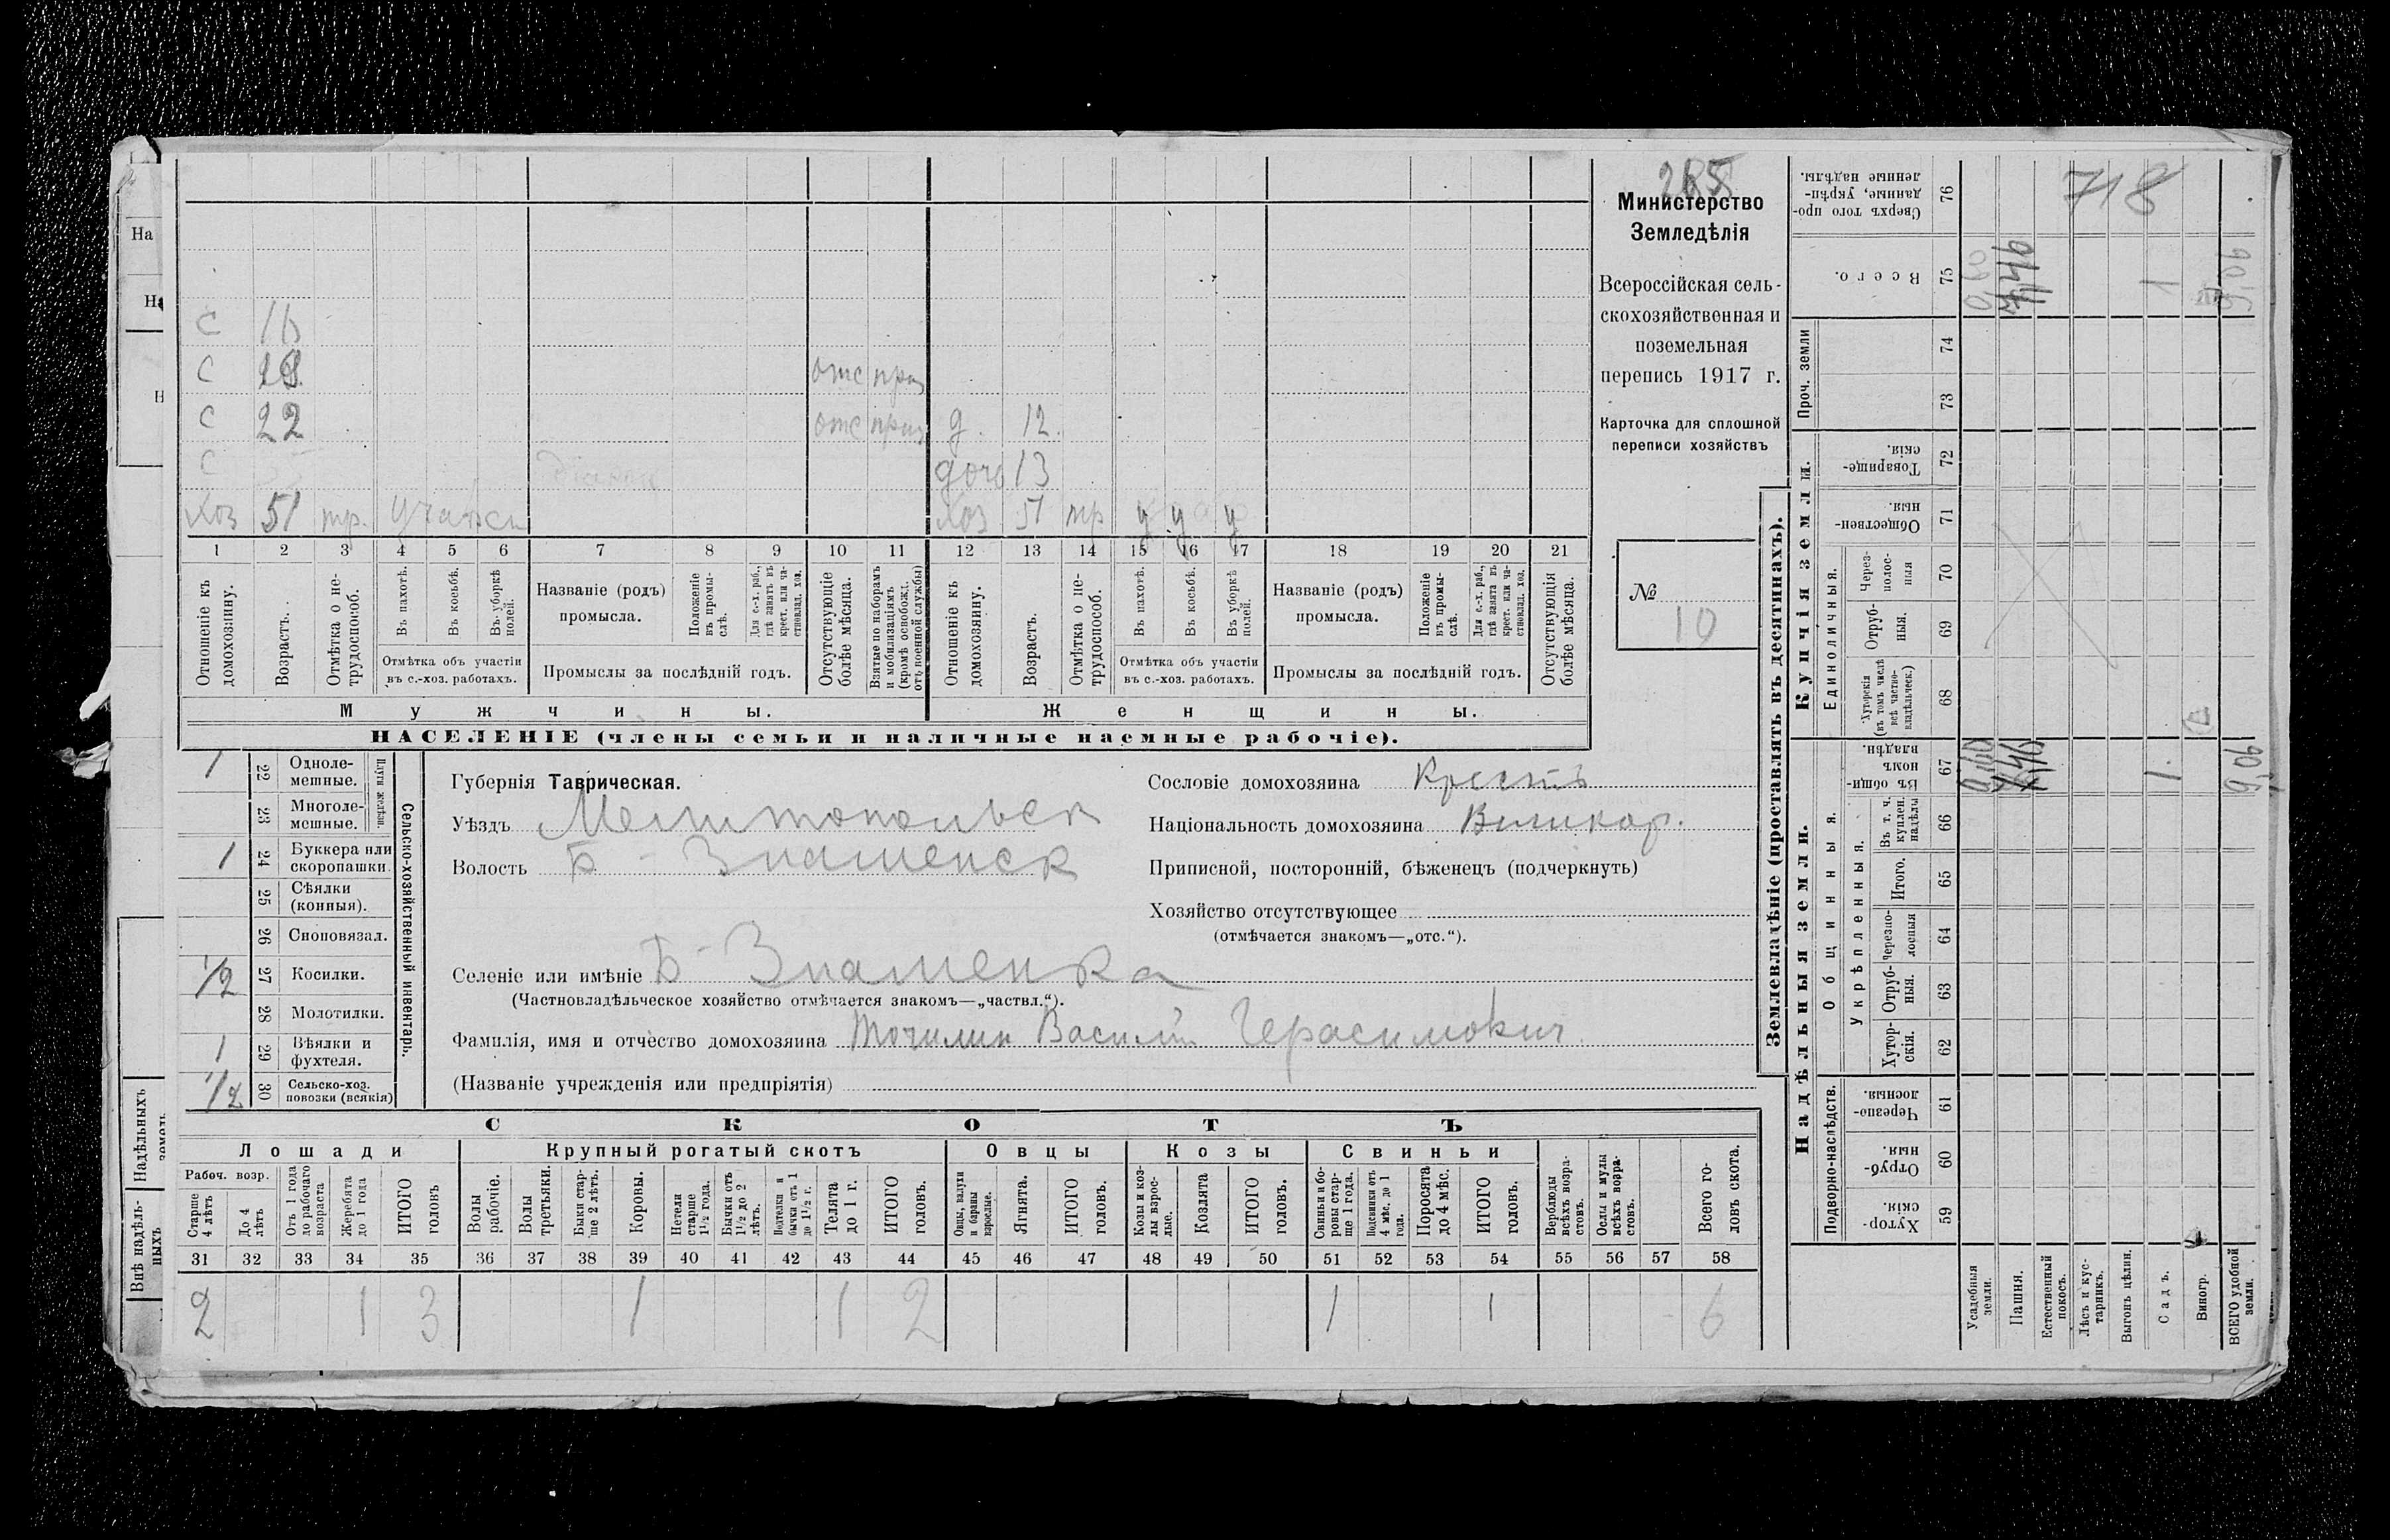 265
718
Министерство
Земледѣлія
Всероссійская сель-
скохозяйственная и
поземельная
перепись 1917 г.
Карточка для сплошной
переписи хозяйствъ
№
10
С 16
С отс приз
С 22 отс приз д. 12.
С дочь 13
Хоз 51 тр. участ Хоз 51 тр у у у
1 2 3 4 5 6 7 8 9 10 11 12 13 14 15 16 17 18 19 20 21
Отношеніе къ домохозяину.
Возрастъ.
Отмѣтка о не-трудоспособ.
Въ пахотѣ.
Въ косьбѣ.
Въ уборкѣ полей.
Отмѣтка объ участіи въ с.-хоз. работахъ.
Названіе (родъ) промысла.
Положеніе въ промы-слѣ.
Для с.-х. раб., гдѣ занятъ въ крест. или ча-стновлад. хоз.
Промыслы за послѣдній годъ.
Отсутствующіе болѣе мѣсяца.
Взятые по наборамъ и мобилизаціямъ (кромѣ освобожд. отъ военной службы)
Отношеніе къ домохозяину.
Возрастъ.
Отмѣтка о не-трудоспособ.
Въ пахотѣ.
Въ косьбѣ.
Въ уборкѣ полей.
Отмѣтка объ участіи въ с.-хоз. работахъ.
Названіе (родъ) промысла.
Положеніе въ промы-слѣ.
Для с.-х. раб., гдѣ занята въ крест. или ча-стновлад. хоз.
Промыслы за послѣдній годъ.
Отсутствующія болѣе мѣсяца.
Мужчины. Женщины.
НАСЕЛЕНІЕ (члены семьи и наличные наемные рабочіе).
Сельско-хозяйственный инвентарь.
Плуги желѣзн.
1 22 Одноле-мешные.
23 Многоле-мешные.
1 24 Буккера или скоропашки.
25 Сѣялки (конныя).
26 Сноповязал.
1/2 27 Косилки.
28 Молотилки.
1 29 Вѣялки и фухтеля.
1/2 30 Сельско-хоз. повозки (всякія)
Губернія Таврическая.
Уѣздъ Мелитопольск
Волость Б-Знаменск
Селеніе или имѣніе Б-Знаменка
(Частновладѣльческое хозяйство отмѣчается знакомъ—„частвл.“).
Фамилія, имя и отчество домохозяина Точилин Василій Герасимович
(Названіе учрежденія или предпріятія)
Сословіе домохозяина Крестъ
Національность домохозяина Великор.
Приписной, посторонній, бѣженецъ (подчеркнуть)
Хозяйство отсутствующее
(отмѣчается знакомъ—„отс.“).
СКОТЪ
Лошади Крупный рогатый скотъ Овцы Козы Свиньи
Рабоч. возр.
Старше 4 лѣтъ
До 4 лѣтъ
Отъ 1 года до рабочаго возраста
Жеребята до 1 года
ИТОГО головъ
Волы рабочіе.
Волы третьяки.
Быки стар-ше 2 лѣтъ.
Коровы.
Нетели старше 1½ года.
Бычки отъ 1½ до 2 лѣтъ.
Подтелки и бычки отъ 1 до 1½ г.
Телята до 1 г.
ИТОГО головъ.
Овцы, валухи и бараны взрослые.
Ягнята.
ИТОГО головъ.
Козы и коз-лы взрос-лые.
Козлята
ИТОГО головъ.
Свиньи и бо-ровы стар-ше 1 года.
Подсвинки отъ 4 мѣс. до 1 года.
Поросята до 4 мѣс.
ИТОГО головъ.
Верблюды всѣхъ возра-стовъ.
Ослы и мулы всѣхъ возра-стовъ.
Всего го-ловъ скота.
31 32 33 34 35 36 37 38 39 40 41 42 43 44 45 46 47 48 49 50 51 52 53 54 55 56 57 58
2 1 3 1 1 2 1 1 6
Землевладѣніе (проставлять въ десятинахъ).
Купчія земли.
Надѣльныя земли.
Сверхъ того про-данные, укрѣп-ленные надѣлы. 76
Всего. 75
Проч. земли 74
73
Товарище-скія. 72
Обществен-ныя. 71
Единоличныя.
Через-полос-ныя 70
Отруб-ныя. 69
Хуторскія (въ томъ числѣ всѣ частно-владѣльческ.) 68
Общинныя.
Въ общин-номъ владѣн. 67
Укрѣпленныя.
Въ т. ч. куплен. надѣлы 66
Итого. 65
Черезпо-лосныя 64
Отруб-ныя. 63
Хутор-скія. 62
Подворно-наслѣдств.
Черезпо-лосныя. 61
Отруб-ныя. 60
Хутор-скія. 59
Усадебныя земли.
Пашня.
Естественный покосъ.
Лѣсъ и кус-тарникъ.
Выгонъ цѣлин.
Садъ.
Виногр.
ВСЕГО удобной земли.
1
1.
На
Надѣльныхъ
Внѣ надѣль-ныхъ